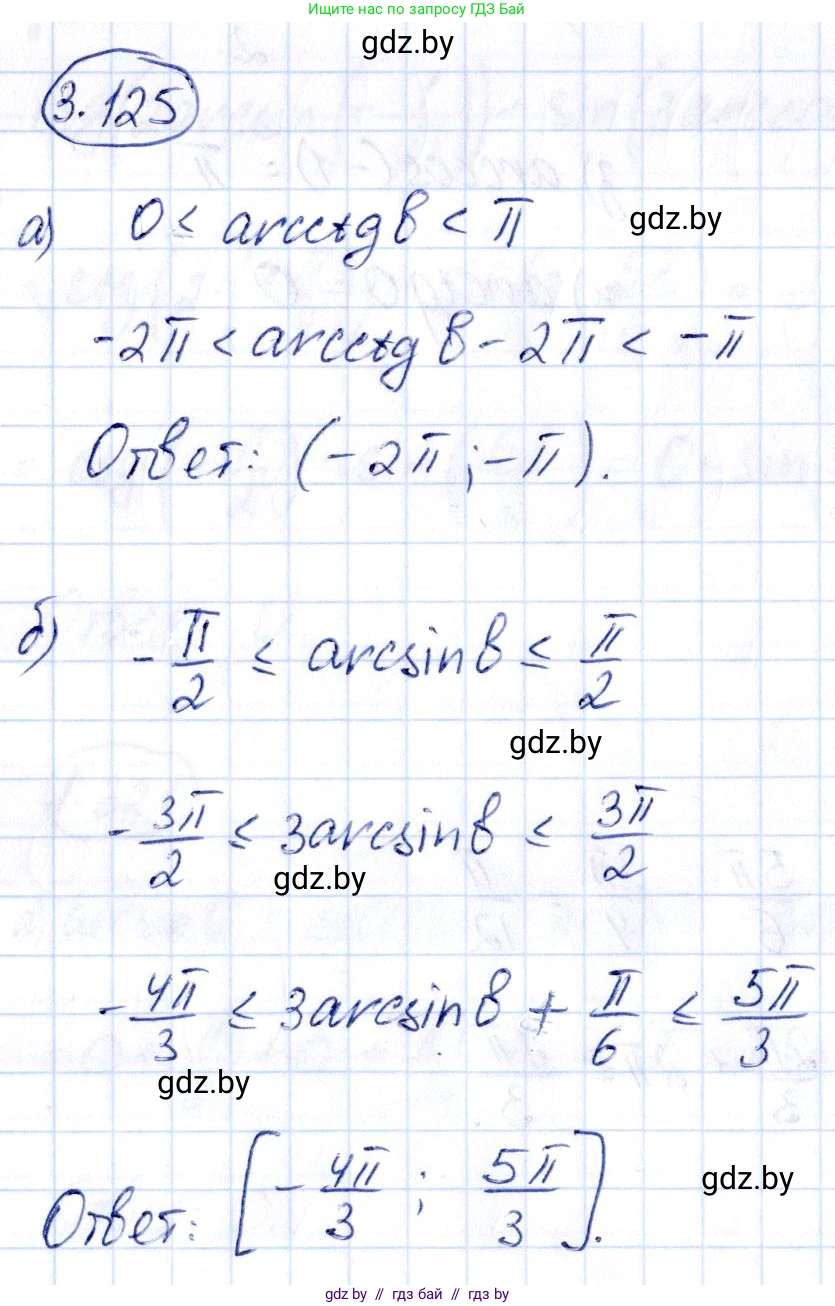 Ищите нас по запросу ГДЗ Бай
gdz.by
3.125
а) 0 ≤ arcctg b < π
gdz.by
-2π < arcctg b - 2π < -π
Ответ: (-2π; -π).
б) -π/2 ≤ arcsin b ≤ π/2
gdz.by
-3π/2 ≤ 3arcsin b ≤ 3π/2
gdz.by
-4π/3 ≤ 3arcsin b + π/6 ≤ 5π/3
gdz.by
gdz.by
Ответ: [-4π/3; 5π/3].
gdz.by // гдз бай // gdz by